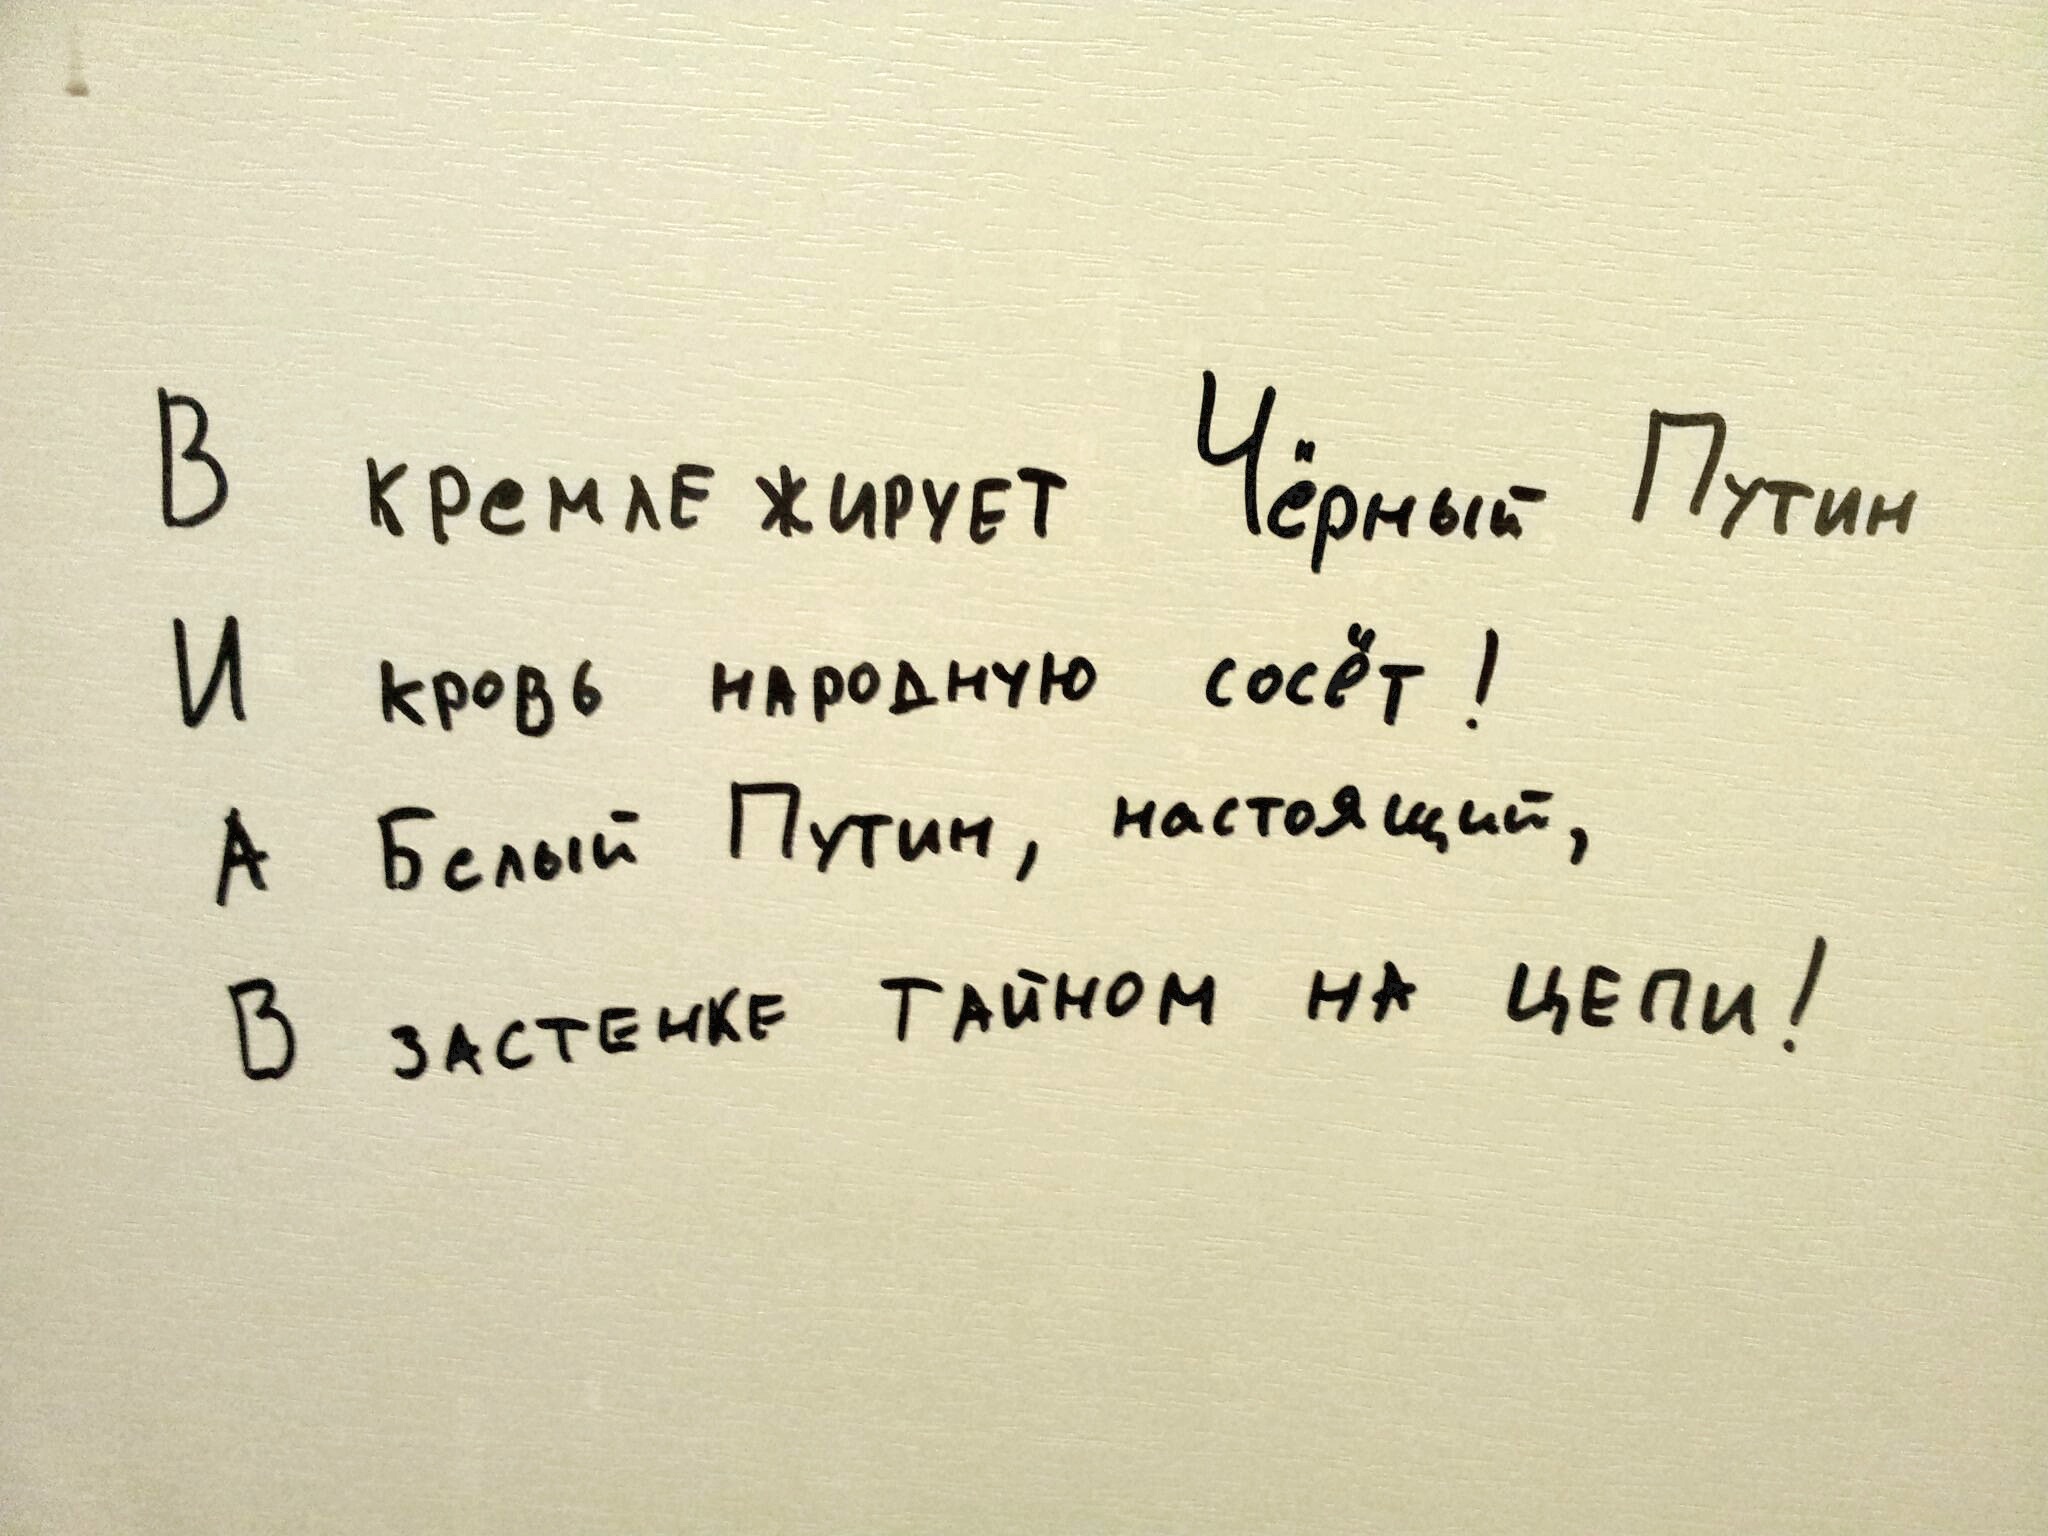 В кремле жирует Чёрный Путин
И кровь народную сосёт!
А Белый Путин, настоящий,
В застенке тайном на цепи!